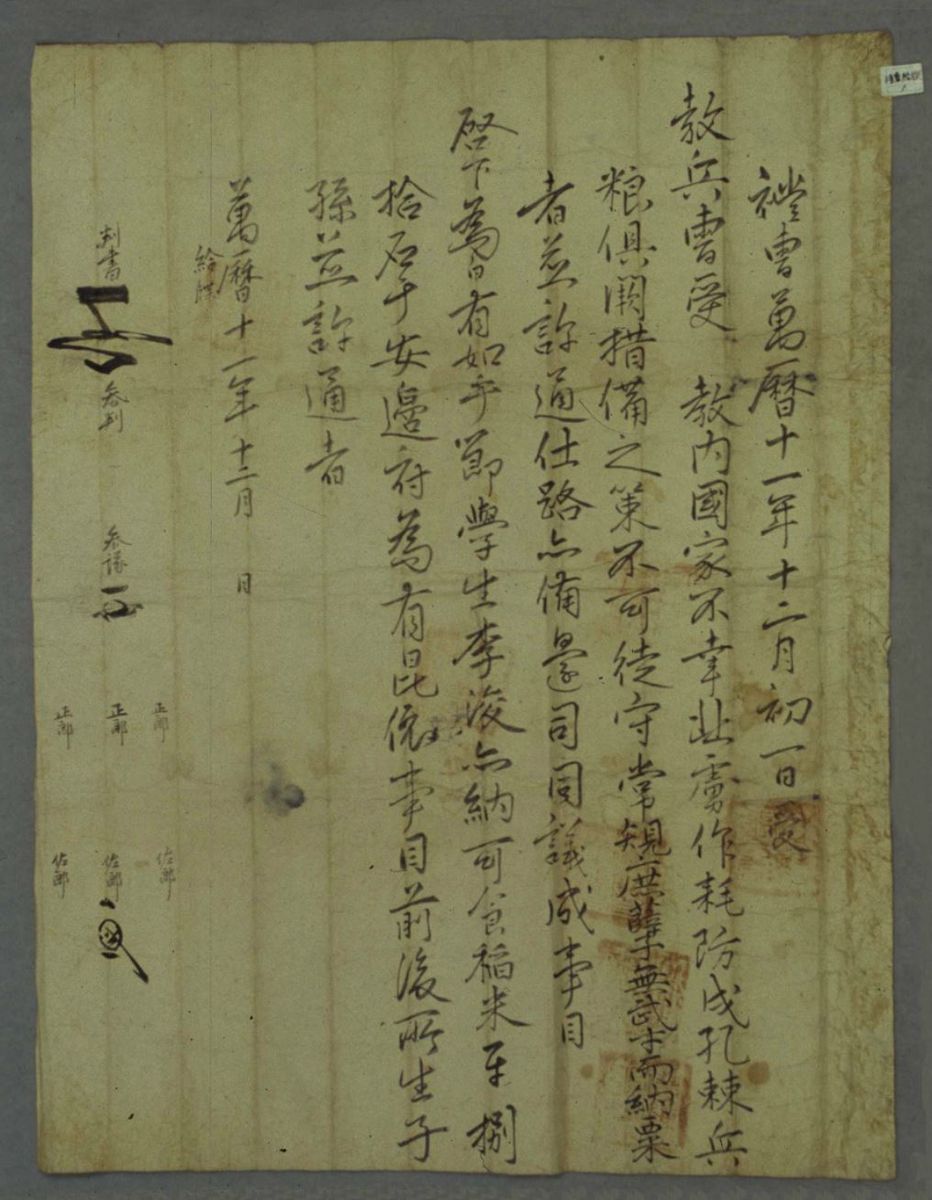 禮曹萬曆十一年十二月初一日受
教兵曹受 教內國家不幸北虜作耗防戍孔棘兵
粮俱闕措備之策不可徒守常規庶孽無武才而納粟
者並許通仕路亦備邊司同議成事目
啓下爲白有如乎節學生李浚亦納可食稻米平捌
拾石于安邊府爲有昆依事目前後所生子
孫並許通者
萬曆十一年十二月 日
給牒
判書
參判
參議
正郎
正郎
正郎
佐郎
佐郎
佐郎